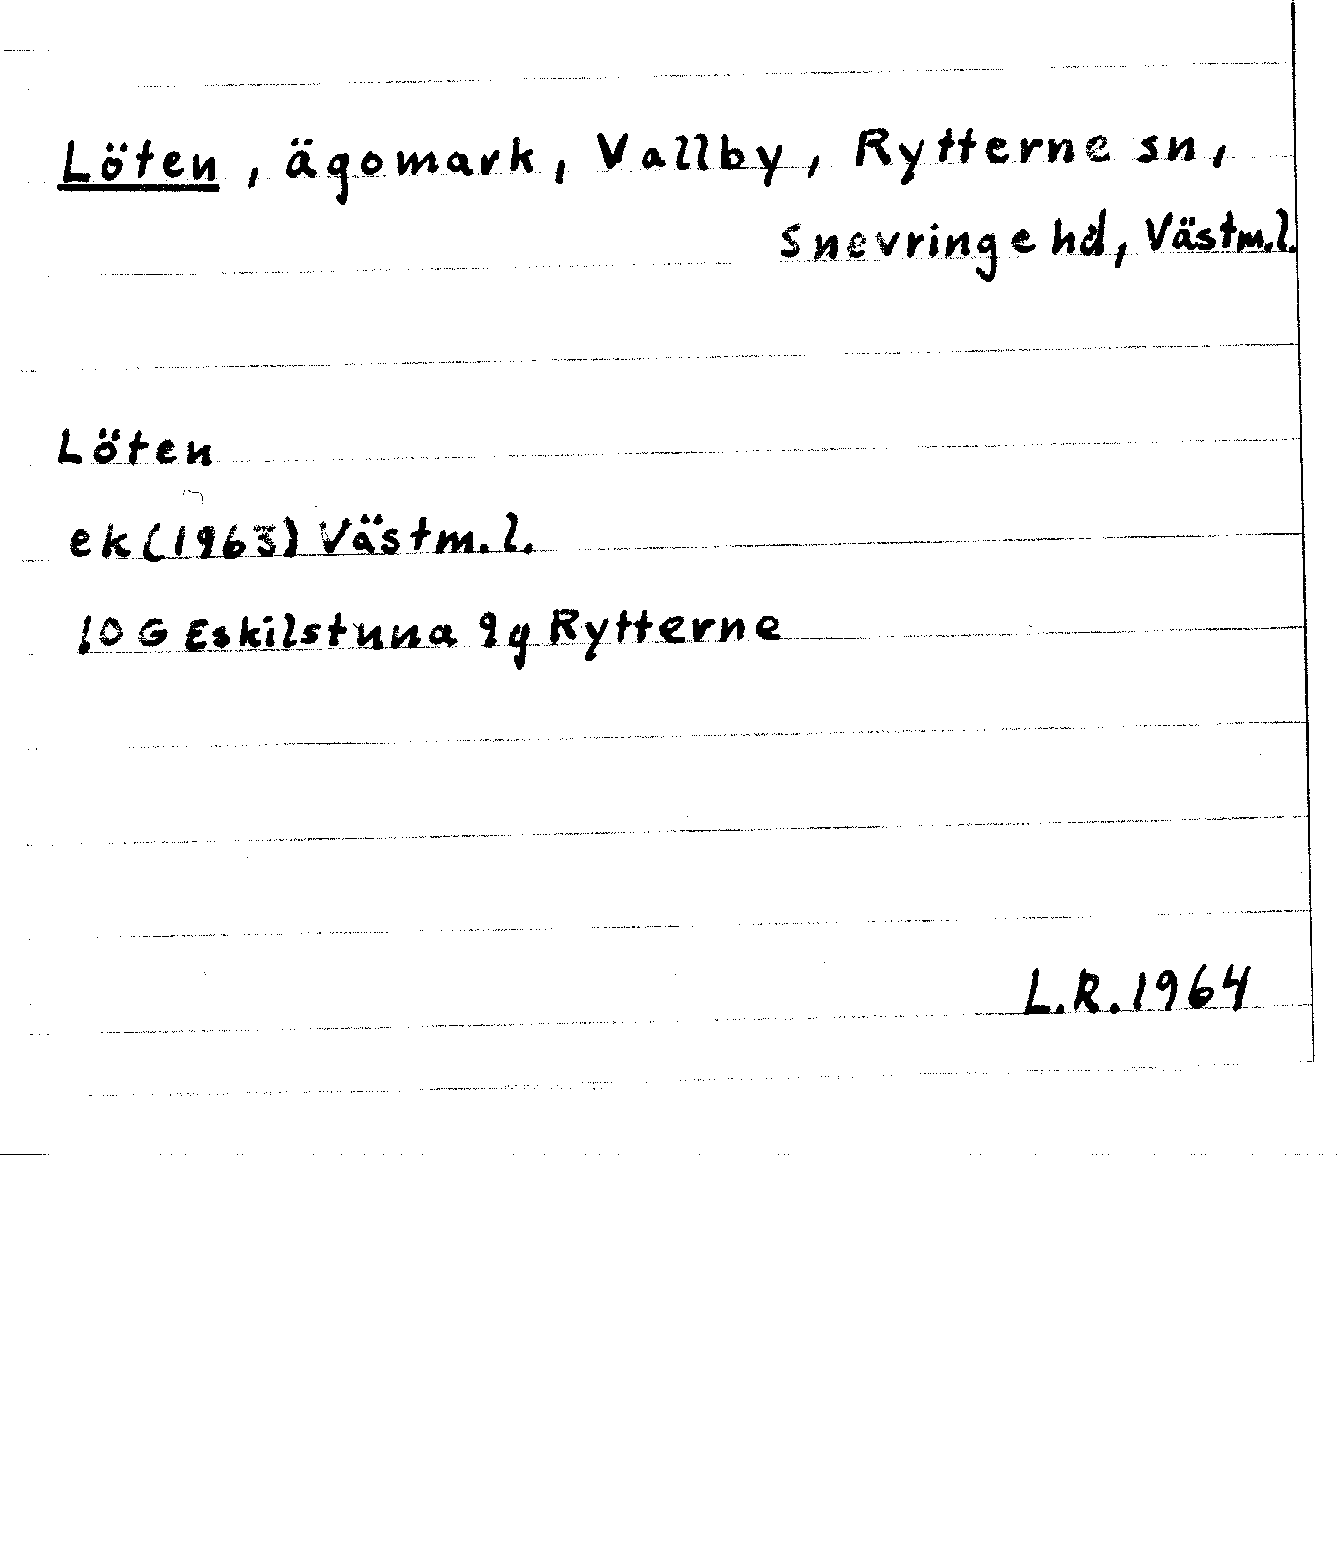 Löten, ägomark, Vallby, Rytterne sn,
Snevringe hd, Västm.l.
Löten
ek (1963) Västm.l.
10 G Eskilstuna 9g Rytterne
L.R. 1964